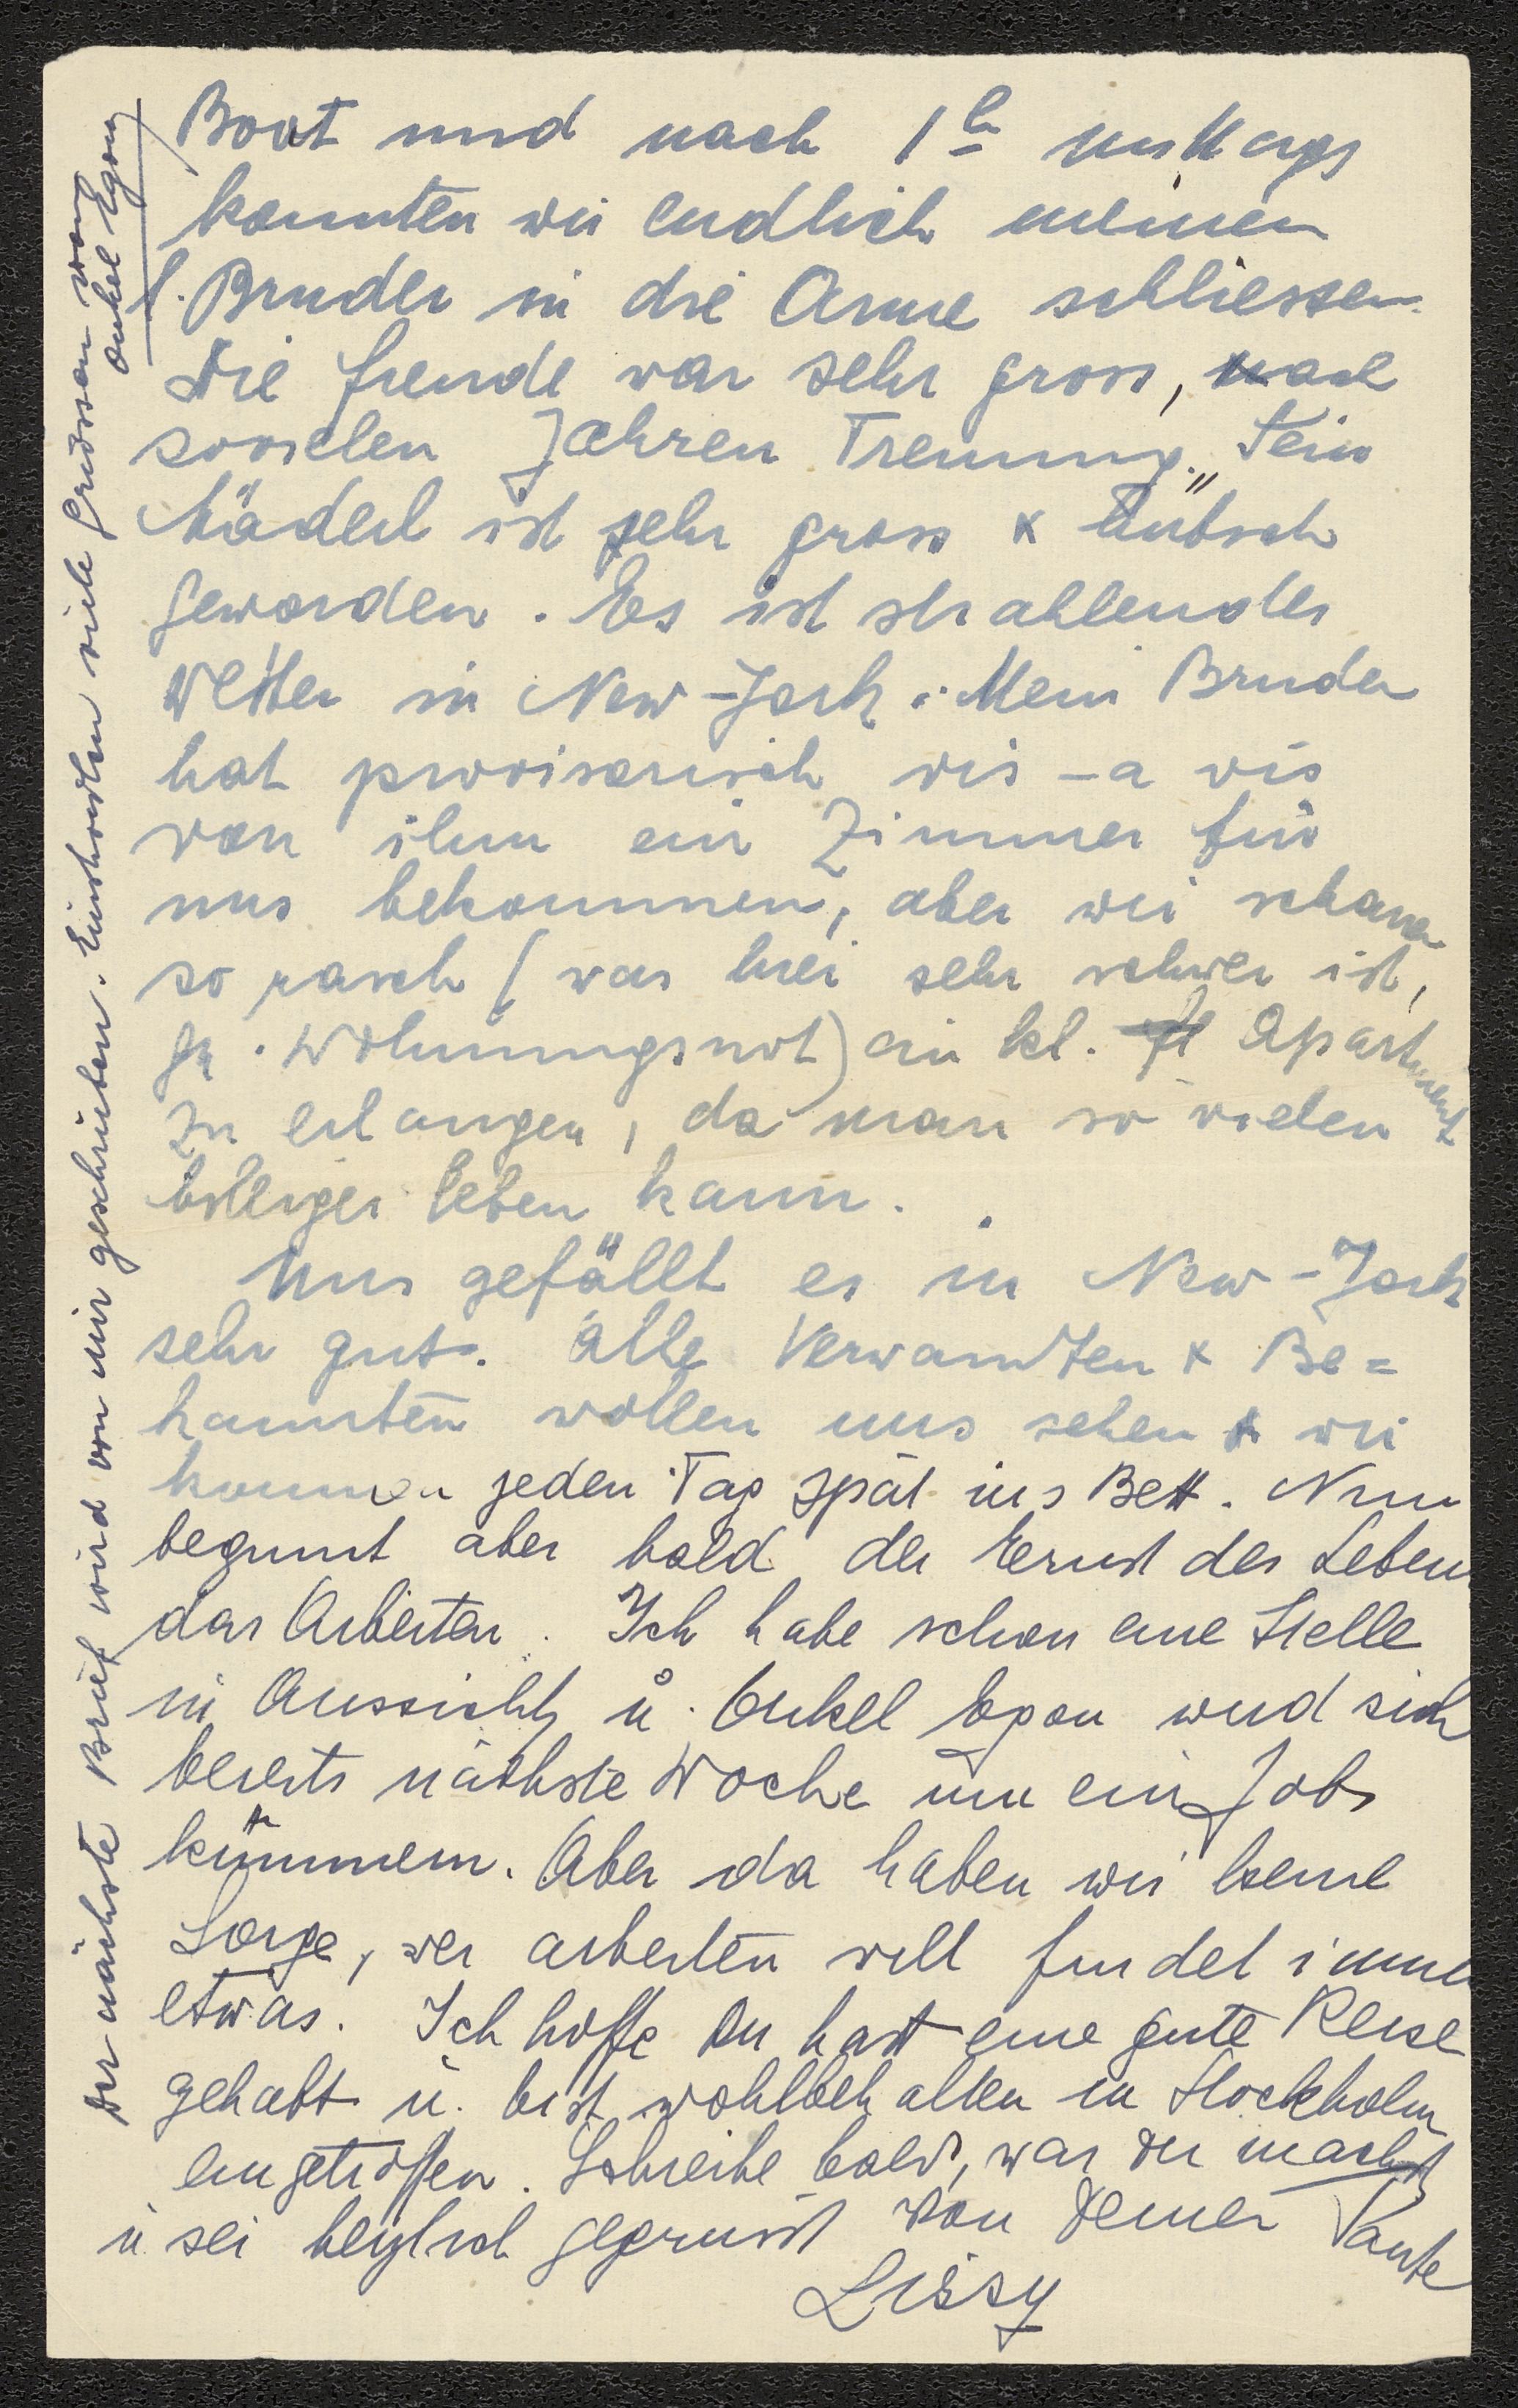 Boot und nach 1 h mittags
konnten wir endlich meinen
l. Bruder in die Arme schliessen.
Die Freude war sehr gross, nach
sovielen Jahren Trennung. Sein
Mäderl ist sehr gross & hübsch
geworden. Es ist strahlendes
Wetter in New-York. Mein Bruder
hat provisorisch vis-a vis
von ihm ein Zimmer für
uns bekommen, aber wir schauen
so rasch (was hier sehr schwer ist,
Wohnungsnot) ein kl. Apartment
zu erlangen, da man so vielen
billiger leben kann.
Uns gefällt es in New-York
sehr gut. Alle Verwandten & Be=
kannten wollen uns sehen & wir
kommen jeden Tag spät ins Bett. Nun
beginnt aber bald der Ernst des Lebens
das Arbeiten. Ich habe schon eine Stelle
in Aussicht u. Onkel Egon wird sich
bereits nächste Woche um ein Job
kümmern. Aber da haben wir keine
Sorge, wer arbeiten will findet immer
etwas. Ich hoffe Du hast eine gute Reise
gehabt u. bist wohlbehalten in Stockholm
eingetroffen. Schreibe bald, was Du machst
u. sei herzlich gegrüsst von Deiner Tante
Lissy
Der nächste Brief wird von mir geschrieben. Einstweilen viele Grüsse von
Onkel Egon